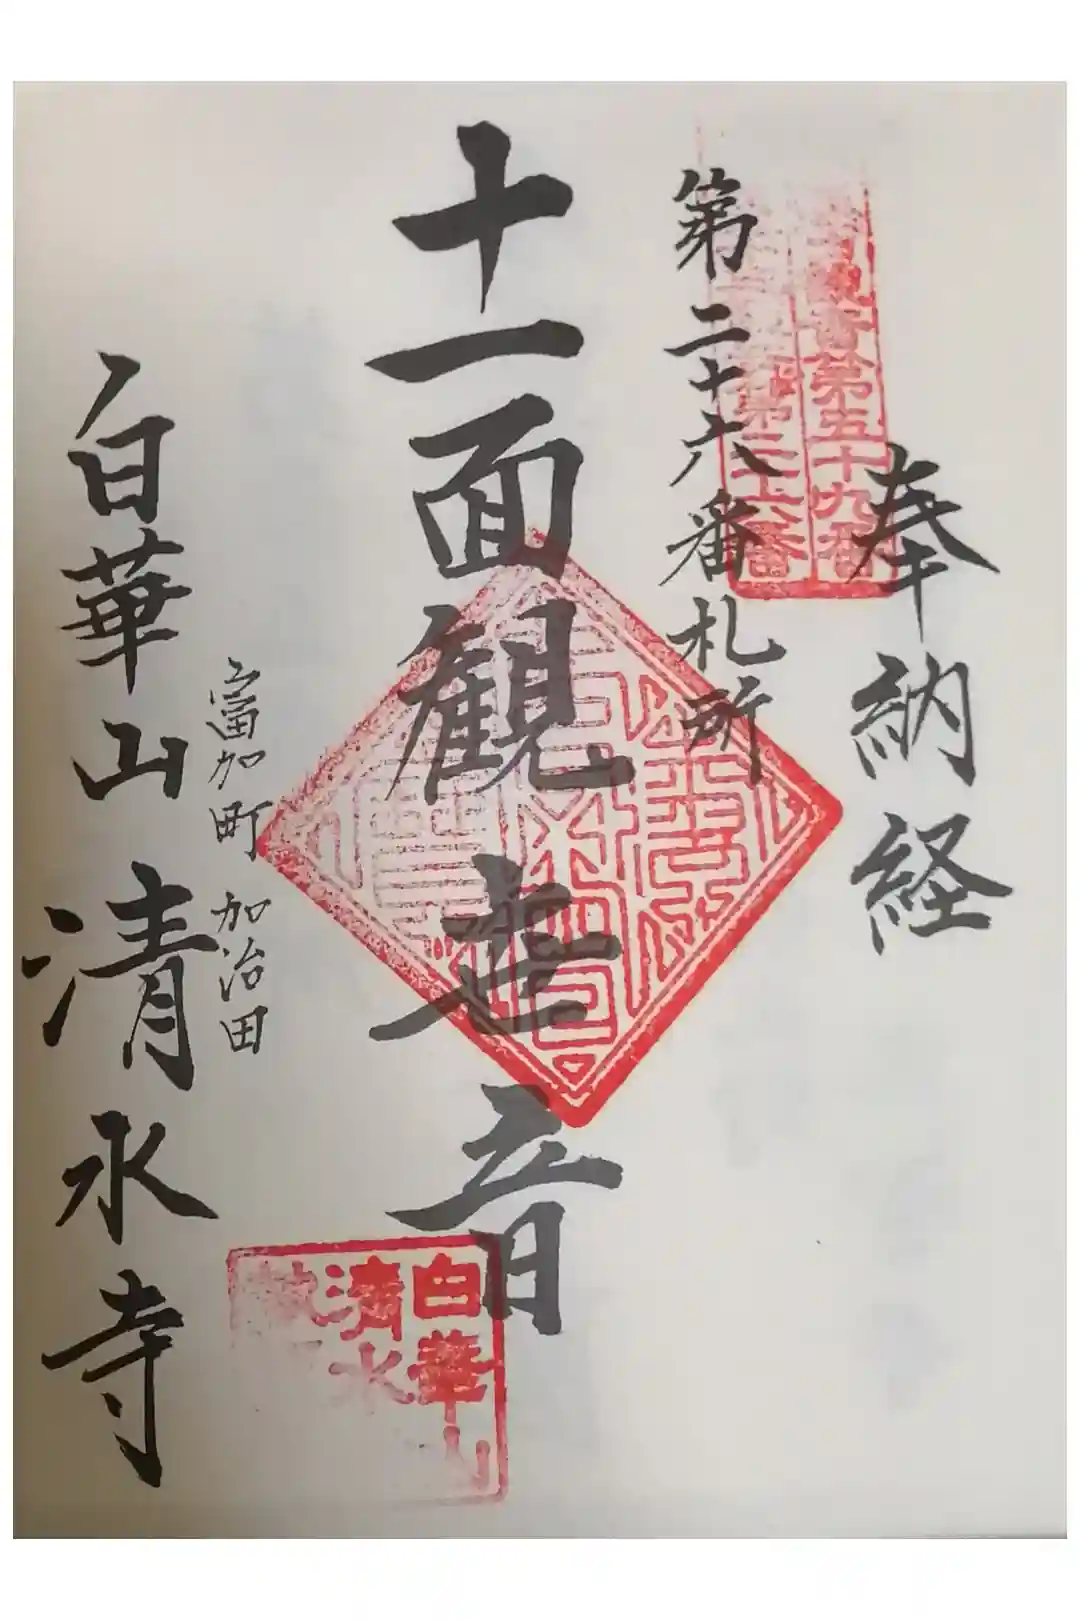 奉納経
観音第五十九番
第二十六番
第二十六番札所
十一面観世音
富加町 加治田
白華山 清水寺
白華山
清水